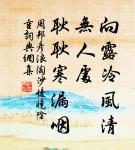 向露冷風清
無人處
耿耿寒漏咽
周邦彥浪淘沙慢曉陰
重詞典網集